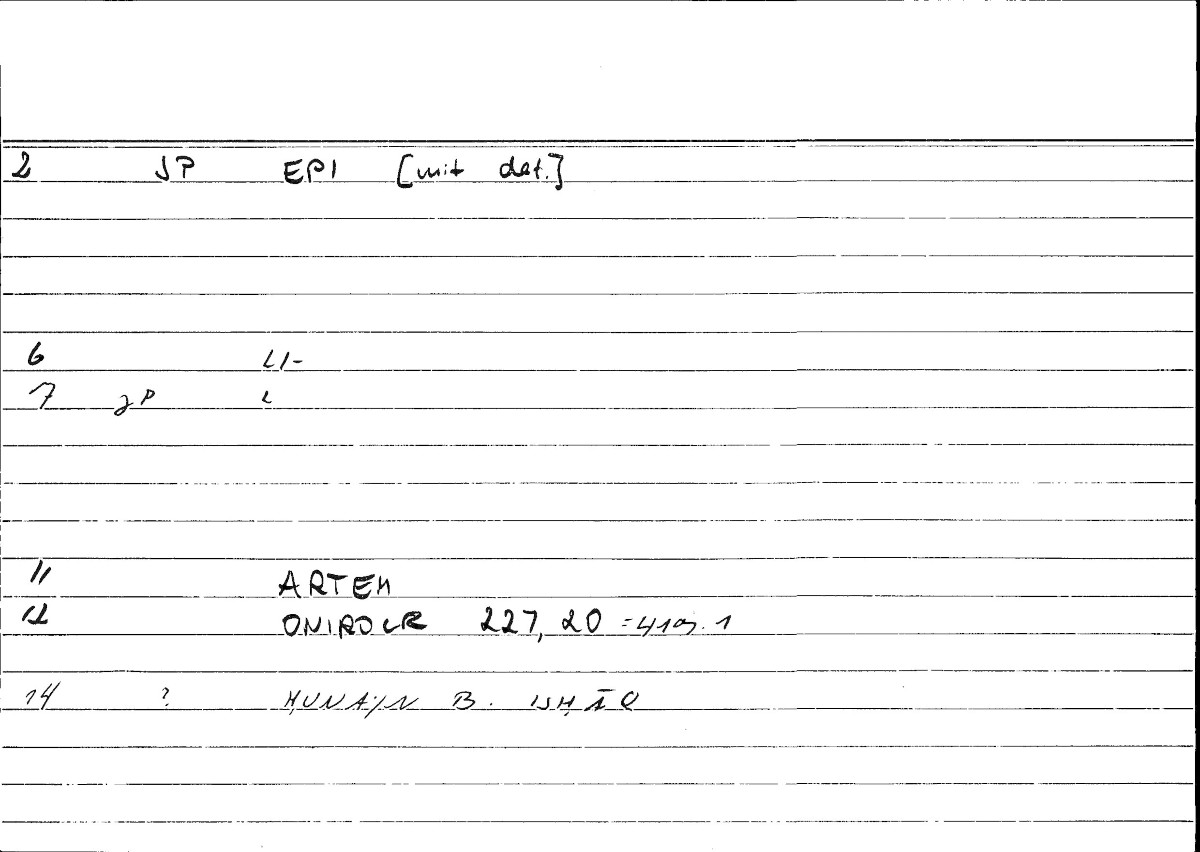 2 JP EPI [mit dat.]
6 LI-
7 JP L
11 ARTEM
12 ONIROCR 227, 20 = 419, 1
14 ? ḤUNAYN B. ISḤĀQ